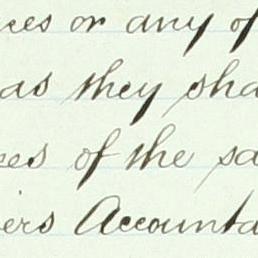 ces or any of
as they sha
ees of the sa
ers Accounta